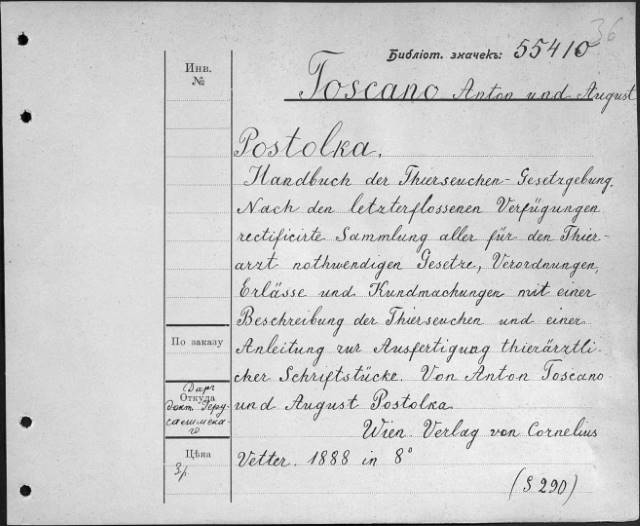 36
Библіот. значекъ: 55410
Инв.
№
Toscano Anton und August
Postolka.
Handbuch der Thierseuchen-Gesetzgebung.
Nach den letzterflossenen Verfügungen
rectificirte Sammlung aller für den Thier-
arzt nothwendigen Gesetze, Verordnungen,
Erlässe und Kundmachungen mit einer
Beschreibung der Thierseuchen und einer
Anleitung zur Ausfertigung thierärztli-
cher Schriftstücke. Von Anton Toscano
und August Postolka
Wien. Verlag von Cornelius
Vetter. 1888 in 8°
(S 290)
По заказу
Даръ
Откуда
докт.
Цѣна